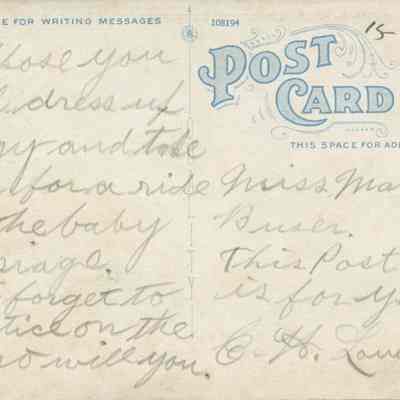 E FOR WRITING MESSAGES
108194
15
POST CARD
THIS SPACE FOR ADD
pose you
dress up
and take
for a ride
the baby
riage.
forget to
tice on the
will you.
Miss Ma
Buser.
This Post
is for y
C. H. Lau